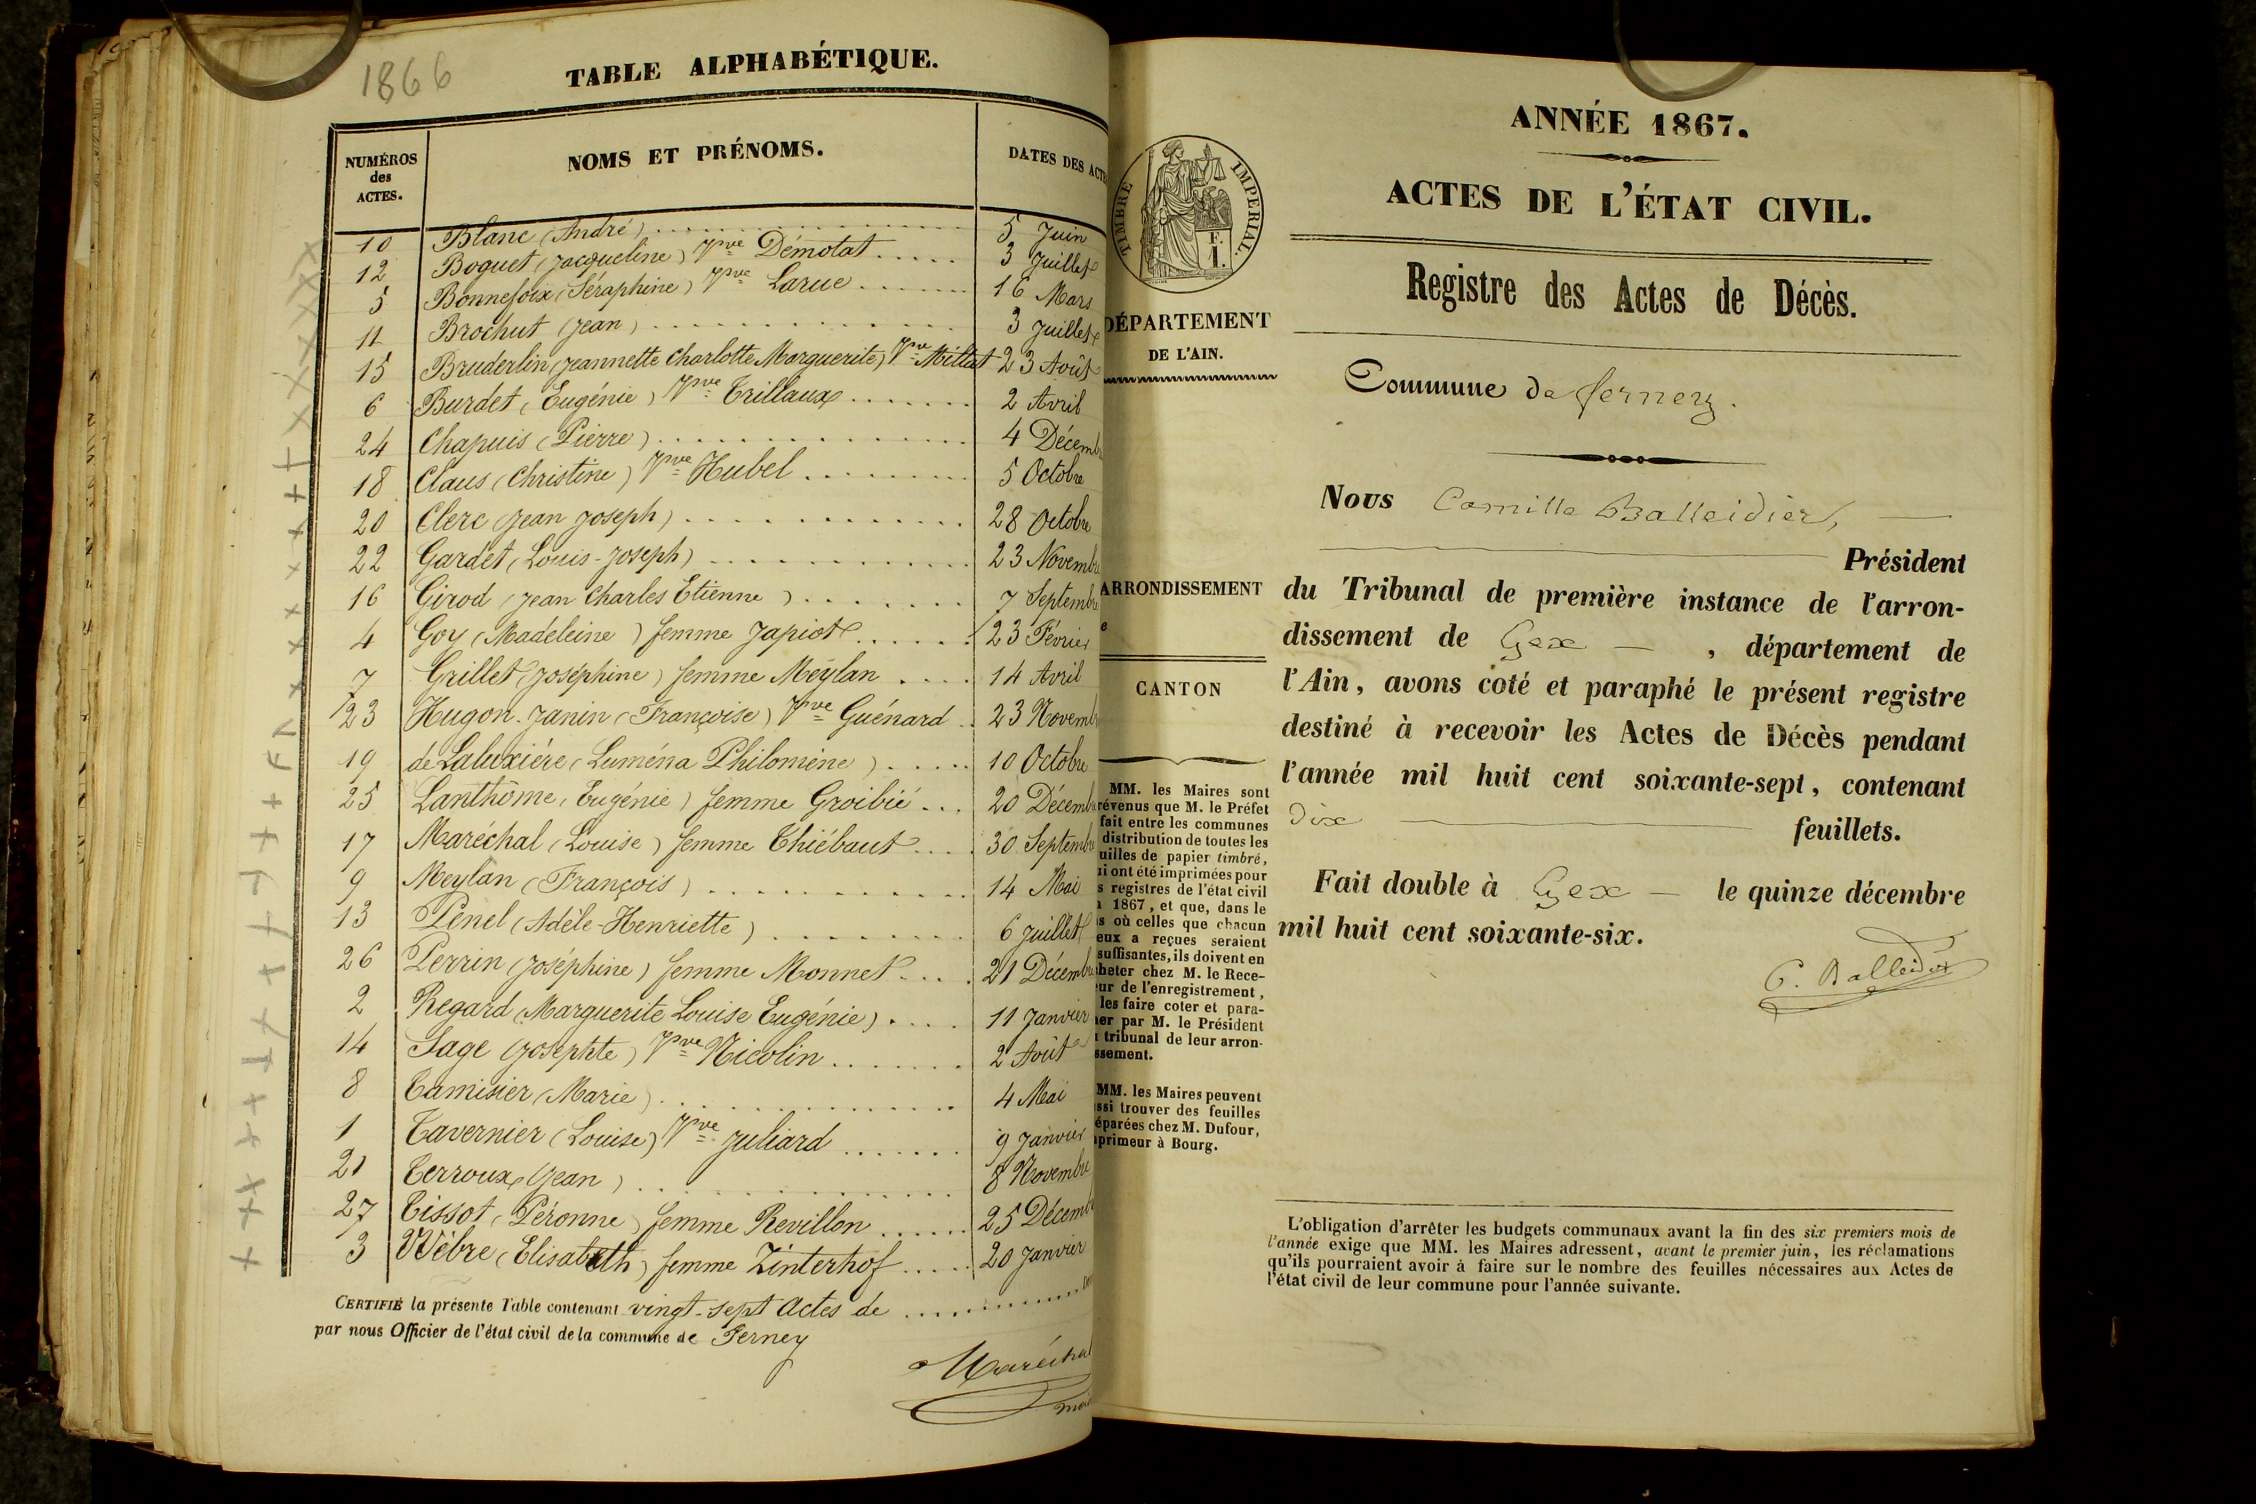 1866
TABLE ALPHABÉTIQUE.
NUMÉROS des ACTES.
NOMS ET PRÉNOMS.
DATES DES ACT
10 Blanc (André) 5 Juin
12 Boguet (Jacqueline) Vve Démotat 3 Juillet
5 Bonnefoix (Séraphine) Vve Larue 16 Mars
11 Brochut (Jean) 3 Juillet
15 Bruderlin (Jeannette Charlotte Marguerite) Vve 23 Août
6 Burdet (Eugénie) Vve Trillaux 2 Avril
24 Chapuis (Pierre) 4 Décemb
18 Claus (Christine) Vve Hubel 5 Octobre
20 Clerc (Jean Joseph) 28 Octobre
22 Gardet (Louis-Joseph) 23 Novembre
16 Girod (Jean Charles Etienne) 7 Septembre
4 Goy (Madeleine) femme Japiot 23 Février
7 Grillet (Joséphine) femme Meylan 14 Avril
23 Hugon-Janin (Françoise) Vve Guénard 23 Novemb
19 de Laluxière (Luména Philomène) 10 Octobre
25 Lanthôme (Eugénie) femme Groibié 20 Décemb
17 Maréchal (Louise) femme Thiébaut 30 Septemb
9 Meylan (François) 14 Mai
13 Penel (Adèle-Henriette) 6 Juillet
26 Perrin (Joséphine) femme Monnet 21 Décemb
2 Regard (Marguerite Louise Eugénie) 11 Janvier
14 Sage (Josephte) Vve Nicolin 2 Août
8 Tamisier (Marie) 4 Mai
1 Tavernier (Louise) Vve Juliard 9 Janvier
21 Terroux (Jean) 8 Novembre
27 Tissot (Péronne) femme Revillon 25 Décemb
3 Wèbre (Elisabeth) femme Zinterhof 20 Janvier
CERTIFIÉ la présente Table contenant vingt-sept Actes de
par nous Officier de l'état civil de la commune de Ferney
Maréchal
TIMBRE IMPERIAL.
F.
1.
DÉPARTEMENT
DE L'AIN.
ARRONDISSEMENT
CANTON
MM. les Maires sont
révenus que M. le Préfet
fait entre les communes
distribution de toutes les
uilles de papier timbré,
ui ont été imprimées pour
s registres de l'état civil
1867, et que, dans le
s où celles que chacun
eux a reçues seraient
suffisantes, ils doivent en
heter chez M. le Rece-
eur de l'enregistrement,
les faire coter et para-
her par M. le Président
tribunal de leur arron-
ssement.
MM. les Maires peuvent
ssi trouver des feuilles
éparées chez M. Dufour,
primeur à Bourg.
ANNÉE 1867.
ACTES DE L'ÉTAT CIVIL.
Registre des Actes de Décès.
Commune de ferney.
Nous Camille Balleidier,
Président
du Tribunal de première instance de l'arron-
dissement de Gex, département de
l'Ain, avons coté et paraphé le présent registre
destiné à recevoir les Actes de Décès pendant
l'année mil huit cent soixante-sept, contenant
dix feuillets.
Fait double à Gex le quinze décembre
mil huit cent soixante-six.
C. Balleidier
L'obligation d'arrêter les budgets communaux avant la fin des six premiers mois de
l'année exige que MM. les Maires adressent, avant le premier juin, les réclamations
qu'ils pourraient avoir à faire sur le nombre des feuilles nécessaires aux Actes de
l'état civil de leur commune pour l'année suivante.